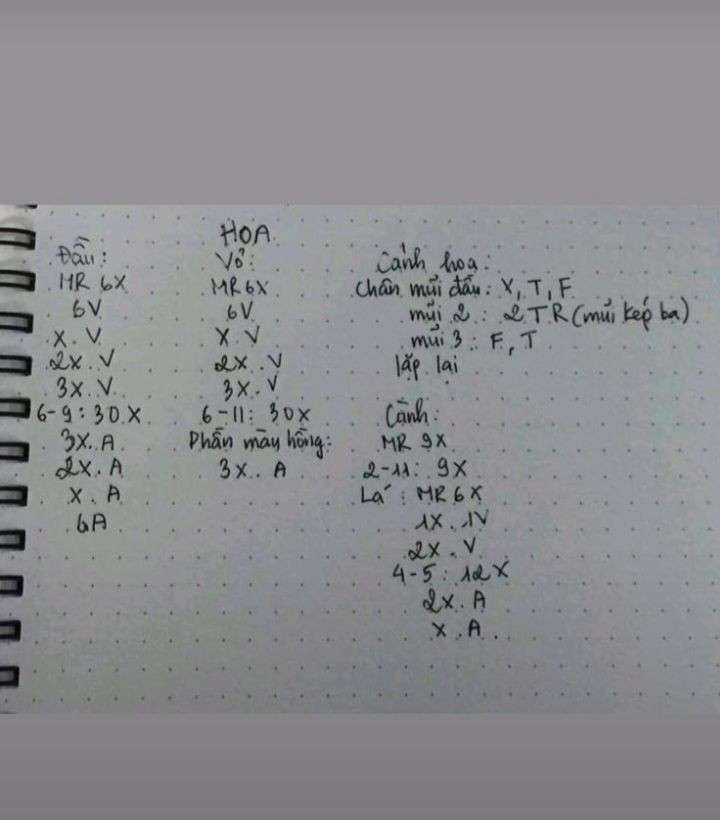 HOA
Đầu:
MR 6X
6V
X.V
2X.V
3X.V
6-9: 30X
3X.A
2X.A
X.A
6A
Vỏ:
MR6X
6V
X.V
2X.V
3X.V
6-11: 30X
Phần màu hồng:
3X.A
Cánh hoa:
Chân mũi đầu: X, T, F
mũi 2: 2TR (mũi kép ba)
mũi 3: F, T
lặp lại
Cành:
MR 9X
2-11: 9X
Lá: MR6X
1X.1V
2X.V
4-5: 12X
2X.A
X.A